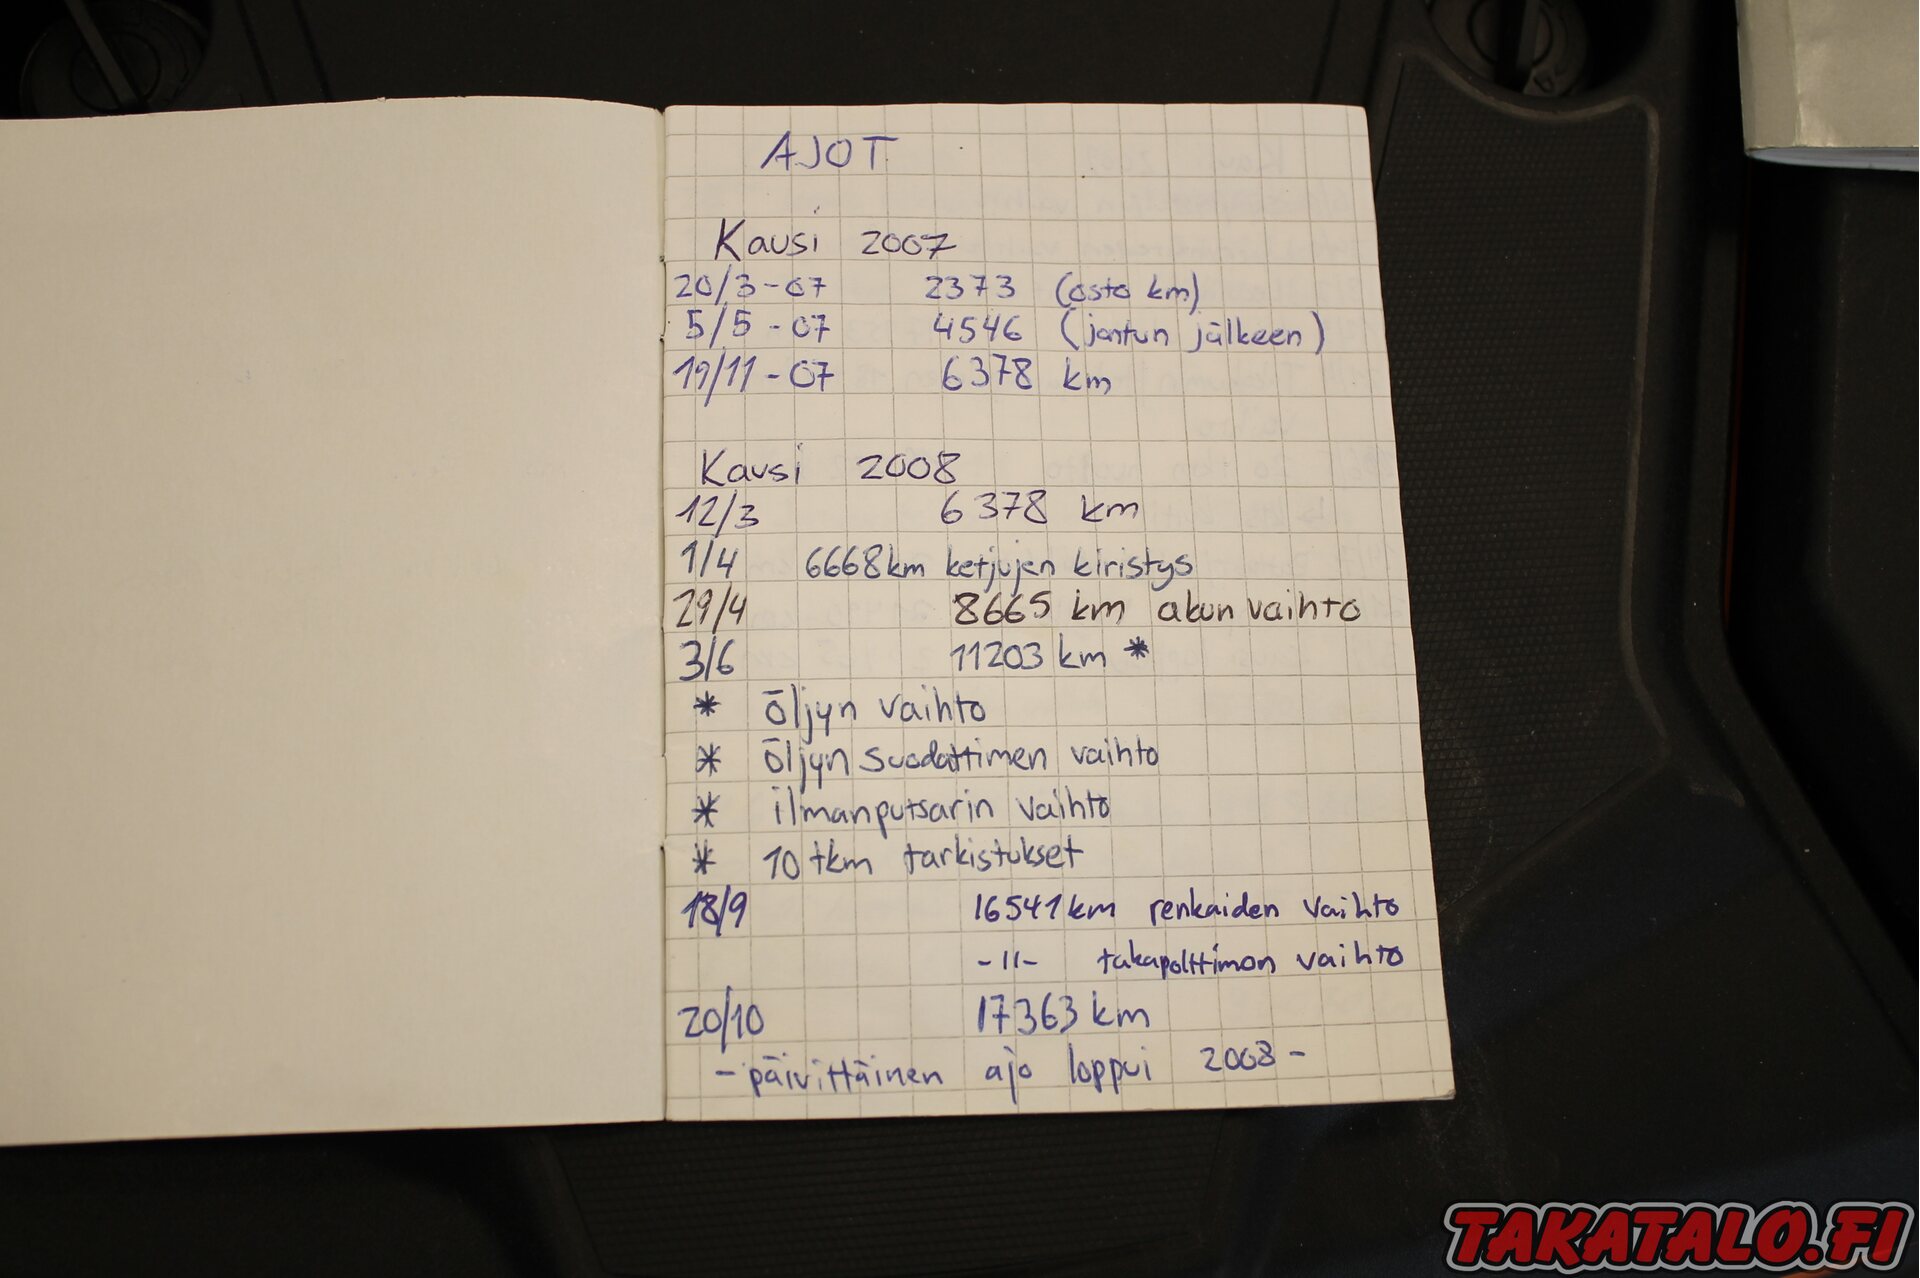 AJOT
Kausi 2007
20/3-07 2373 (osto km)
5/5-07 4546 (jälkeen)
19/11-07 6378 km
Kausi 2008
12/3 6378 km
1/4 6668km ketjujen kiristys
29/4 8665 km akun vaihto
3/6 11203 km *
* öljyn vaihto
* öljyn suodattimen vaihto
* ilmanputsarin vaihto
* 10 tkm tarkistukset
18/9 16541km renkaiden vaihto
-11- takapolttimon vaihto
20/10 17363 km
- päivittäinen ajo loppui 2008 -
TAKATALO.FI